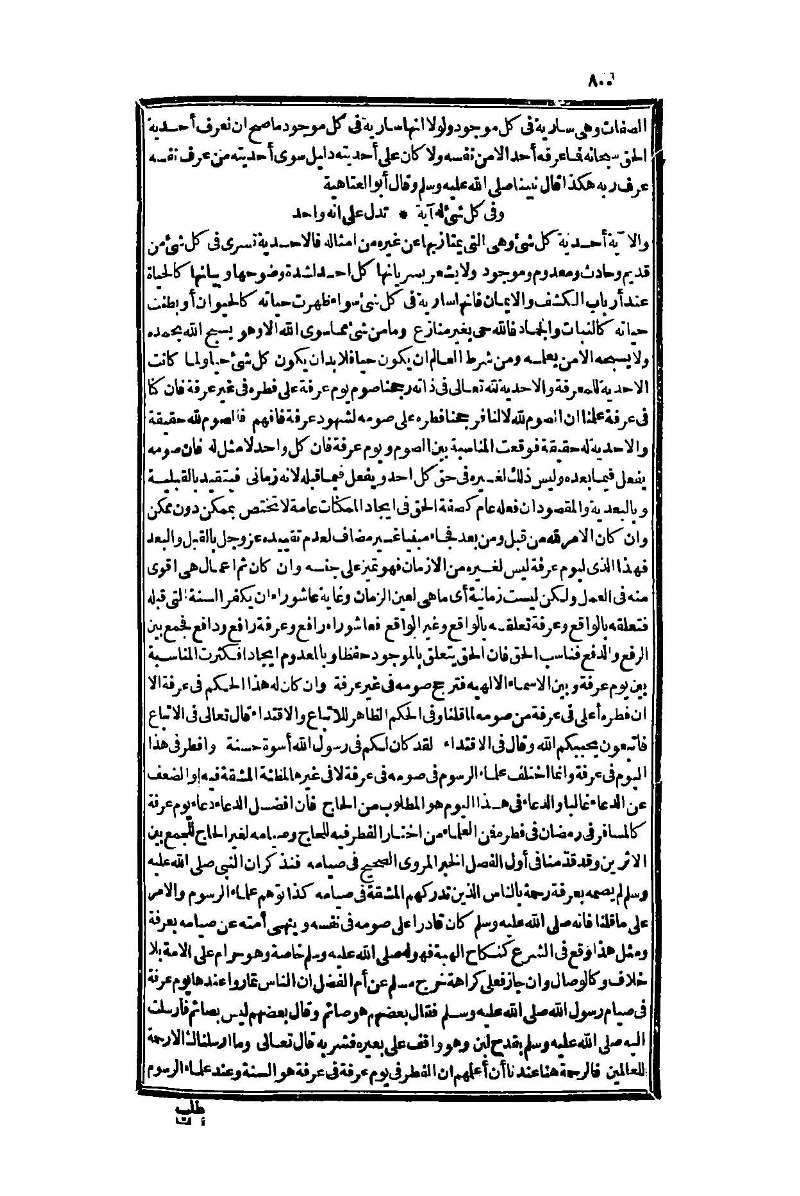 ٨٠٠
الصفات وهى سارية فى كل موجود ولولا انها سارية فى كل موجود ما صح ان نعرف أحدية
الحق سبحانه فما عرفه أحد الا من نفسه ولا كان على أحديته دليل سوى أحديته من عرف نفسه
عرف ربه هكذا قال نبينا صلى الله عليه وسلم وقال أبو العتاهية
وفى كل شئ له آية * تدل على انه واحد
والآية أحدية كل شئ وهى التى يمتاز بها عن غيره من امثاله فالاحدية تسرى فى كل شئ من
قديم وحادث ومعدوم وموجود ولا يشعر بسريانها كل احد لشدة وضوحها وبيانها كالحياة
عند أرباب الكشف والايمان فانها سارية فى كل شئ سواء ظهرت حياته كالحيوان أو بطنت
حياته كالنبات والجماد فالله حى بغير منازع وما من شئ مما سوى الله الا وهو يسبح الله بحمده
ولا يسبحه الا من يعلمه ومن شرط العالم ان يكون حيا فلا بد ان يكون كل شئ حيا ولما كانت
الاحدية للمعرفة والاحدية لله تعالى فى ذاته رجحنا صوم يوم عرفة على فطره فى غير عرفة فان كنا
فى عرفة علمنا ان الصوم لله لا لنا فرجحنا فطره على صومه لشهود عرفة فافهم فالصوم لله حقيقة
والاحدية له حقيقة فوقعت المناسبة بين الصوم و يوم عرفة فان كل واحد لا مثل له فان صومه
يفعل فيما بعده وليس ذلك لغيره فى حق كل احد ويفعل فيما قبله لانه زمانى فيتقيد بالقبلية
وبالبعدية والمقصود ان فعله عام كصفة الحق فى ايجاد الممكنات عامة لا تختص بممكن دون ممكن
وان كان الامر لله من قبل ومن بعد فجاء مبنيا غير مضاف لعدم تقييده عز وجل بالقبل والبعد
فهذا الذى ليوم عرفة ليس لغيره من الازمان فهو تميز على جنسه وان كان ثم اعمال هى اقوى
منه فى العمل ولكن ليست زمانية أى ما هى لعين الزمان وغاية عاشوراء ان يكفر السنة التى قبله
فتعلقه بالواقع وعرفة تعلقه بالواقع وغير الواقع فعاشوراء رافع وعرفة رافع ودافع فجمع بين
الرفع والدفع فناسب الحق فان الحق يتعلق بالموجود حفظا وبالمعدوم ايجادا فكثرت المناسبة
بين يوم عرفة وبين الاسماء الالهيه فترجح صومه فى غير عرفة وان كان له هذا الحكم فى عرفة الا
ان فطره أعلى فى عرفة من صومه لما قلنا وفى الحكم الظاهر للاتباع والاقتداء قال تعالى فى الاتباع
فاتبعون يحببكم الله وقال فى الاقتداء لقد كان لكم فى رسول الله أسوة حسنة وافطر فى هذا
اليوم فى عرفة وانما اختلف علماء الرسوم فى صومه فى عرفة لا فى غيرها لمظنة المشقة فيه والضعف
عن الدعاء غالبا والدعاء فى هذا اليوم هو المطلوب من الحاج فان افضل الدعاء دعاء يوم عرفة
كالمسافر فى رمضان فى فطره فمن العلماء من اختار الفطر فيه للحاج وصيامه لغير الحاج للجمع بين
الاثرين وقد قدمنا فى أول الفصل الخبر المروى الصحيح فى صيامه فنذكر ان النبى صلى الله عليه
وسلم لم يصمه بعرفة رحمة بالناس الذين تدركهم المشقة فى صيامه كذا توهم علماء الرسوم والامر
على ما قلنا فانه صلى الله عليه وسلم كان قادرا على صومه فى نفسه وينهى أمته عن صيامه بعرفة
ومثل هذا وقع فى الشرع كنكاح الهبة فهو له صلى الله عليه وسلم خاصة وهو حرام على الامة بلا
خلاف وكالوصال وان جاز فعلى كراهة خرج مسلم عن أم الفضل ان الناس تماروا عندها يوم عرفة
فى صيام رسول الله صلى الله عليه وسلم فقال بعضهم هو صائم وقال بعضهم ليس بصائم فأرسلت
اليه صلى الله عليه وسلم بقدح لبن وهو واقف على بعيره فشربه قال تعالى وما ارسلناك الا رحمة
للعالمين فالرحمة هنا عندنا أن أعلمهم ان الفطر فى يوم عرفة فى عرفة هو السنة وعند علماء الرسوم
طلب